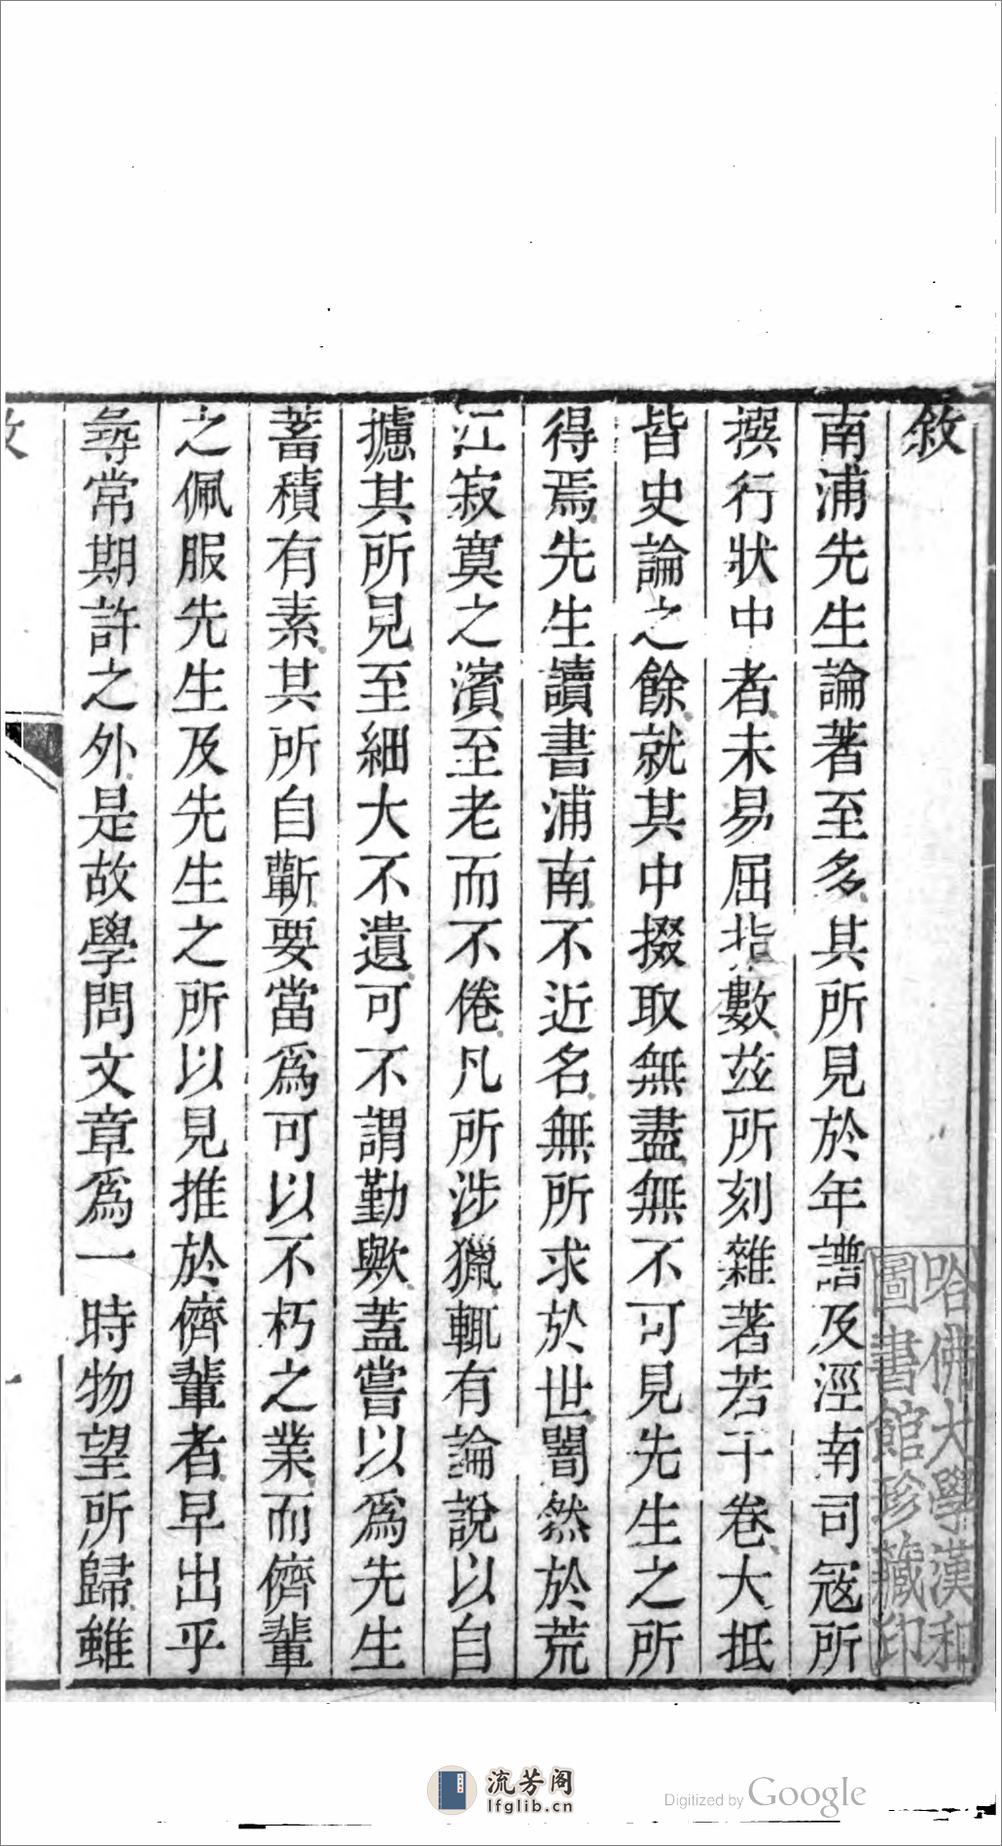 敘
南浦先生論著至多其所見於年譜及涇南司寇所
撰行狀中者未易屈指數茲所刻雜著若干卷大抵
皆史論之餘就其中掇取無盡無不可見先生之所
得焉先生讀書浦南不近名無所求於世闇然於荒
江寂寞之濱至老而不倦凡所涉獵輒有論說以自
攄其所見至細大不遺可不謂勤歟蓋嘗以爲先生
蓄積有素其所自蘄要當爲可以不朽之業而儕輩
之佩服先生及先生之所以見推於儕輩者早出乎
尋常期許之外是故學問文章爲一時物望所歸雖
哈佛大學漢和
圖書館珍藏印
流芳阁
lfglib.cn
Digitized by Google